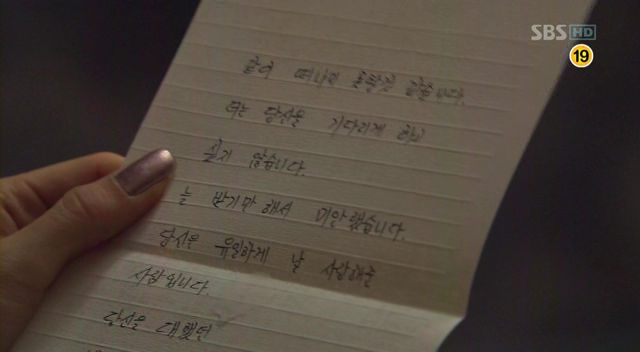 SBS HD
19
같이 떠나지 못할것 같습니다.
더는 당신을 기다리게 하고
싶지 않습니다.
늘 받기만 해서 미안했습니다.
당신은 유일하게 날 사랑해준
사람입니다.
당신을 대했던